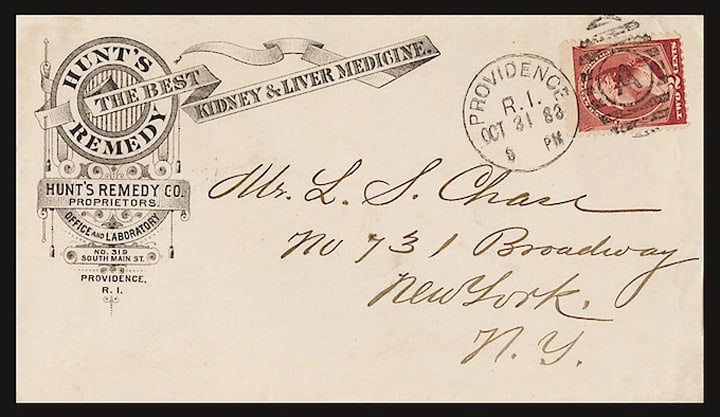 HUNT'S
REMEDY
THE BEST
KIDNEY & LIVER MEDICINE.
HUNT'S REMEDY CO.
PROPRIETORS.
OFFICE AND LABORATORY
NO. 319
SOUTH MAIN ST.
PROVIDENCE,
R. I.
PROVIDENCE
R. I.
OCT 31 83
9 PM
Mr. L. S. Chase
No 731 Broadway
New York.
N. Y.